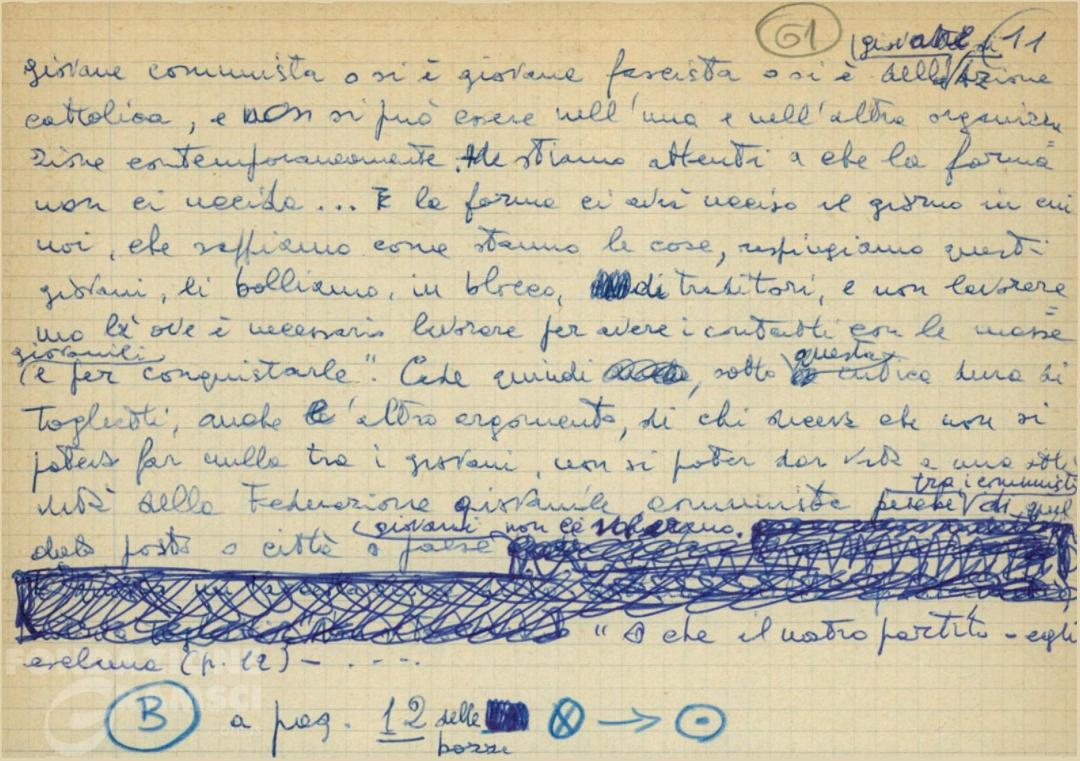 61 giovane di 11
giovane comunista o si è giovane fascista o si è dell'Azione
cattolica, e non si può essere nell'una e nell'altra organizza
zione contemporaneamente. Ma stiamo attenti a che la forma
non ci uccida... E la forma ci avrà ucciso il giorno in cui
noi, che sappiamo come stanno le cose, respingiamo questi
giovani, li bolliamo, in blocco, di traditori, e non lavorere
mo là ove è necessario lavorare per avere i contatti con le masse
giovanili
e per conquistarle". Cade quindi, sotto questa critica dura di
Togliatti, anche l'altro argomento, di chi diceva che non si
poteva far nulla tra i giovani, non si poter dar vita a una
tra i comunisti
vità della Federazione giovanile comunista perché di quel
giovani non ce n'erano.
dato posto o città o paese
"O che il nostro partito - egli
esclama (p. 12) - . . . .
FONDAZIONE
GRAMSCI
B a pag. 12 delle
bozze